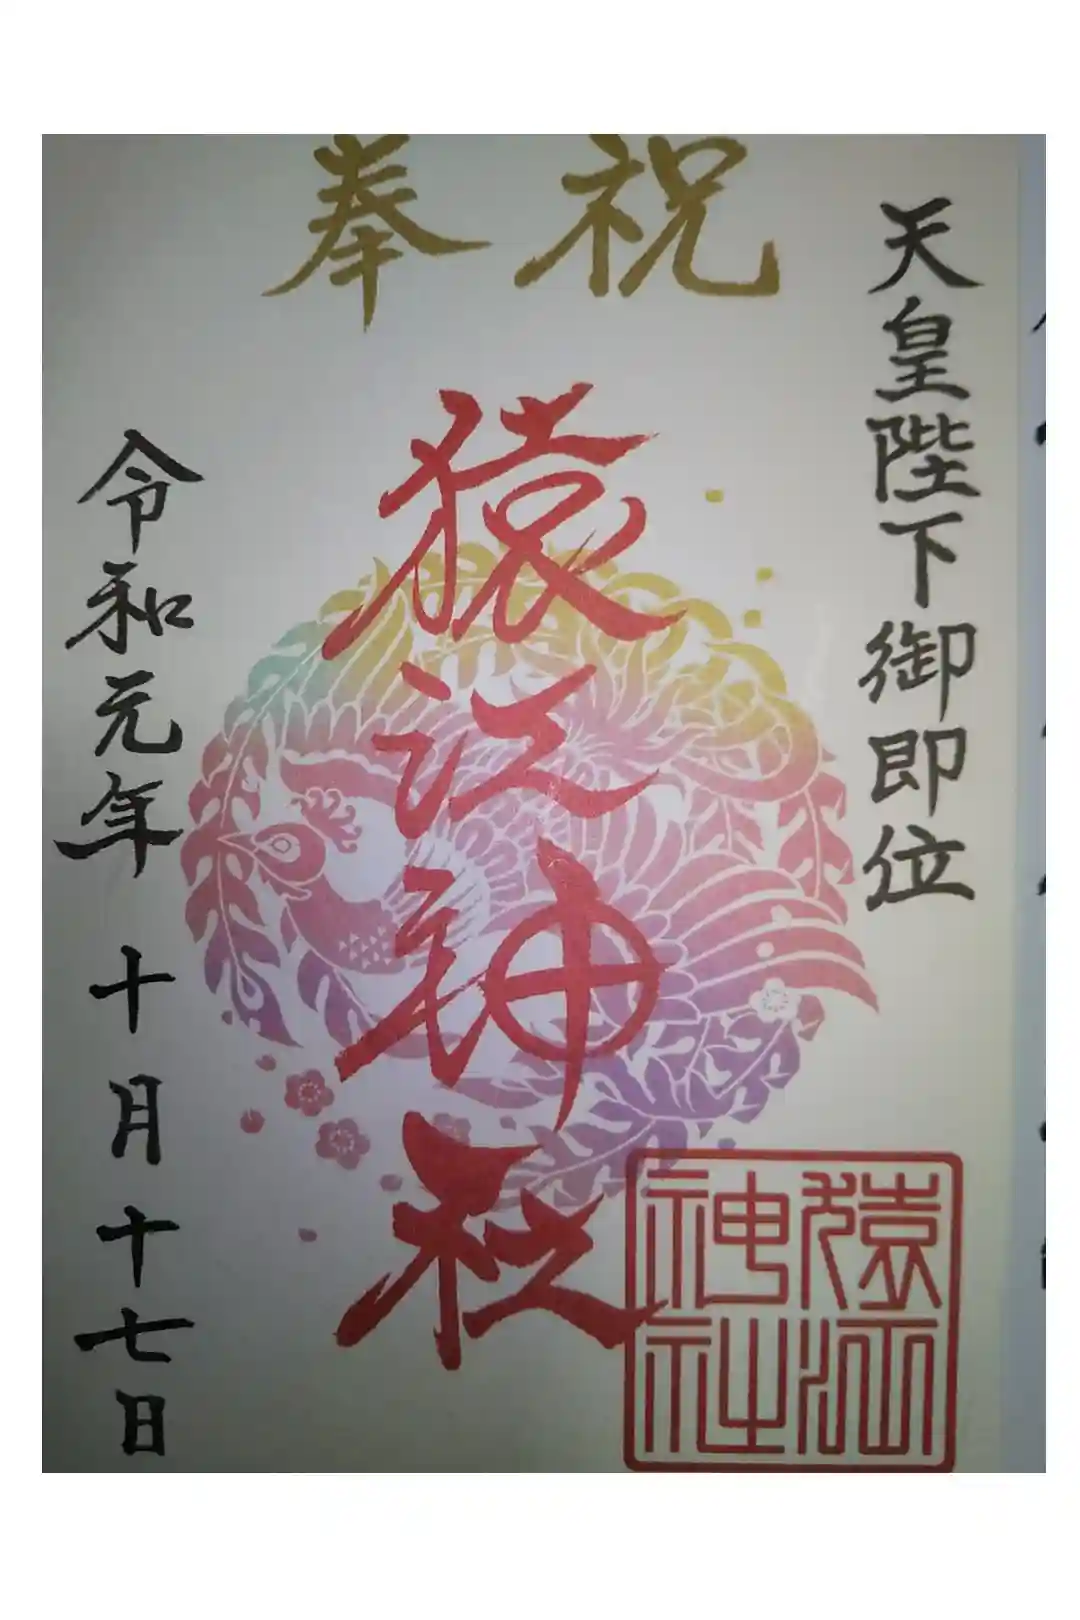 奉祝
天皇陛下御即位
猿江神社
令和元年 十月十七日
猿江神社